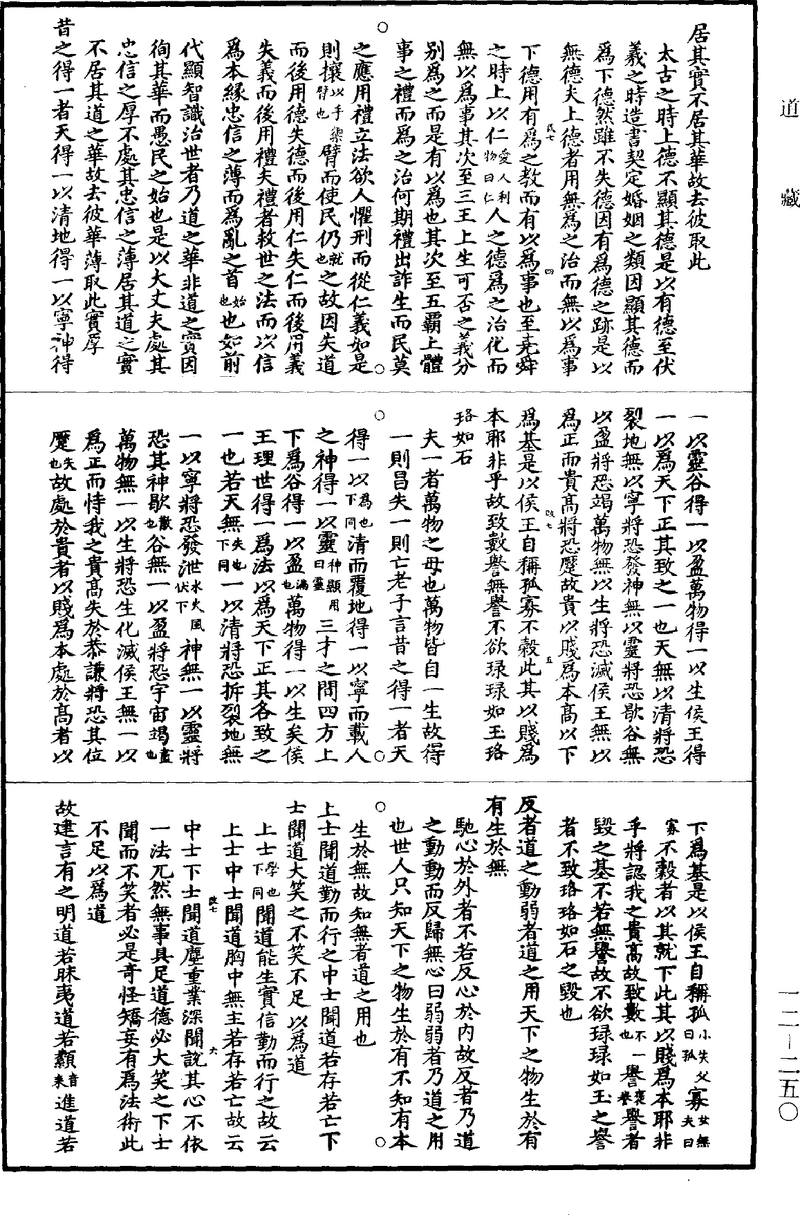 道藏
居其實不居其華故去彼取此
太古之時上德不顯其德是以有德至伏
羲之時造書契定婚姻之類因顯其德而
爲下德然雖不失德因有爲德之跡是以
無德夫上德者用無爲之治而無以爲事
下德用有爲之教而有以爲事也至堯舜
之時上以仁愛人利物曰仁人之德爲之治化而
無以爲事其次至三王上生可否之義分
别爲之而是有以爲也其次至五霸上體
事之禮而爲之治何期禮出詐生而民莫
之應用禮立法欲人懼刑而從仁義如是
則攘以手除也臂而使民仍就也之故因失道
而後用德失德而後用仁失仁而後用義
失義而後用禮夫禮者救世之法而以信
爲本緣忠信之薄而爲亂之首始也也如前
代顯智識治世者乃道之華非道之實因
徇其華而愚民之始也是以大丈夫處其
忠信之厚不處其忠信之薄居其道之實
不居其道之華故去彼華薄取此實厚
昔之得一者天得一以清地得一以寧神得
一以靈谷得一以盈萬物得一以生侯王得
一以爲天下正其致之一也天無以清將恐
裂地無以寧將恐發神無以靈將恐歇谷無
以盈將恐竭萬物無以生將恐滅侯王無以
爲正而貴高將恐蹷故貴以賤爲本高以下
爲基是以侯王自稱孤寡不穀此其以賤爲
本耶非乎故致數譽無譽不欲琭琭如玉珞
珞如石
夫一者萬物之母也萬物皆自一生故得
一則昌失一則亡老子言昔之得一者天
得一以爲也下同清而覆地得一以寧而載人
之神得一以靈神顯用曰靈三才之間四方上
下爲谷得一以盈滿也萬物得一以生矣侯
王理世得一爲法以爲天下正其各致之
一也若天無失也下同一以清將恐拆裂地無
一以寧將恐發泄水火風伏下神無一以靈將
恐其神歇散也谷無一以盈將恐宇宙竭盡也
萬物無一以生將恐生化滅侯王無一以
爲正而恃我之貴高失於恭謙將恐其位
蹷失也故處於貴者以賤爲本處於高者以
下爲基是以侯王自稱孤小失父曰孤寡女無夫曰
寡不穀者以其就下此其以賤爲本耶非
乎將認我之貴高故致數不一也譽褒譽譽者
毀之基不若無譽故不欲琭琭如玉之譽
者不致珞珞如石之毀也
反者道之動弱者道之用天下之物生於有
有生於無
馳心於外者不若反心於内故反者乃道
之動動而反歸無心曰弱弱者乃道之用
也世人只知天下之物生於有不知有本
生於無故知無者道之用也
上士聞道勤而行之中士聞道若存若亡下
士聞道大笑之不笑不足以爲道
上士學也下同聞道能生實信勤而行之故云
上士中士聞道胸中無主若存若亡故云
中士下士聞道塵重業深聞說其心不依
一法兀然無事具足道德必大笑之下士
聞而不笑者必是奇怪矯妄有爲法術此
不足以爲道
故建言有之明道若昧夷道若纇音耒進道若
一二－二五〇